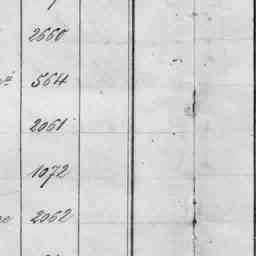 2660
564
2061
1072
2062